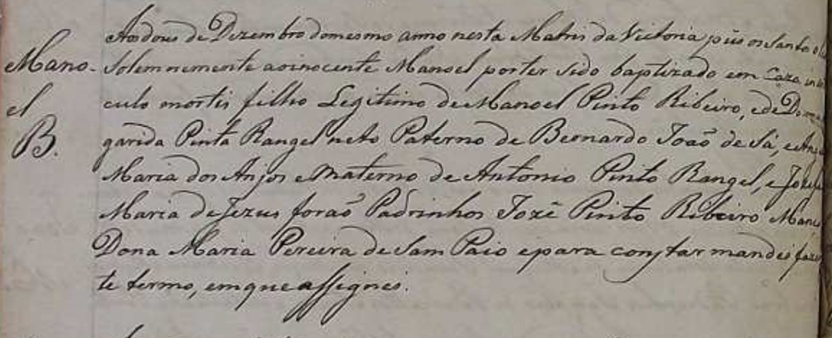 Aos dous de Dezembro do mesmo anno nesta Matris da Victoria pûs os Santos
Mano-
el
B.
Solemnemente ao inocente Manoel por ter sido baptizado em Caza, in
culo mortis filho Legitimo de Manoel Pinto Ribeiro, e de Dona
garida Pinta Rangel neto Paterno de Bernardo Joaõ de Sá, e
Maria dos Anjos e Materno de Antonio Pinto Rangel, e Jozefa
Maria de Jezus foraõ Padrinhos Jozê Pinto Ribeiro
Dona Maria Pereira de Sam Paio e para constar mandei faze
te termo, em que assignei.